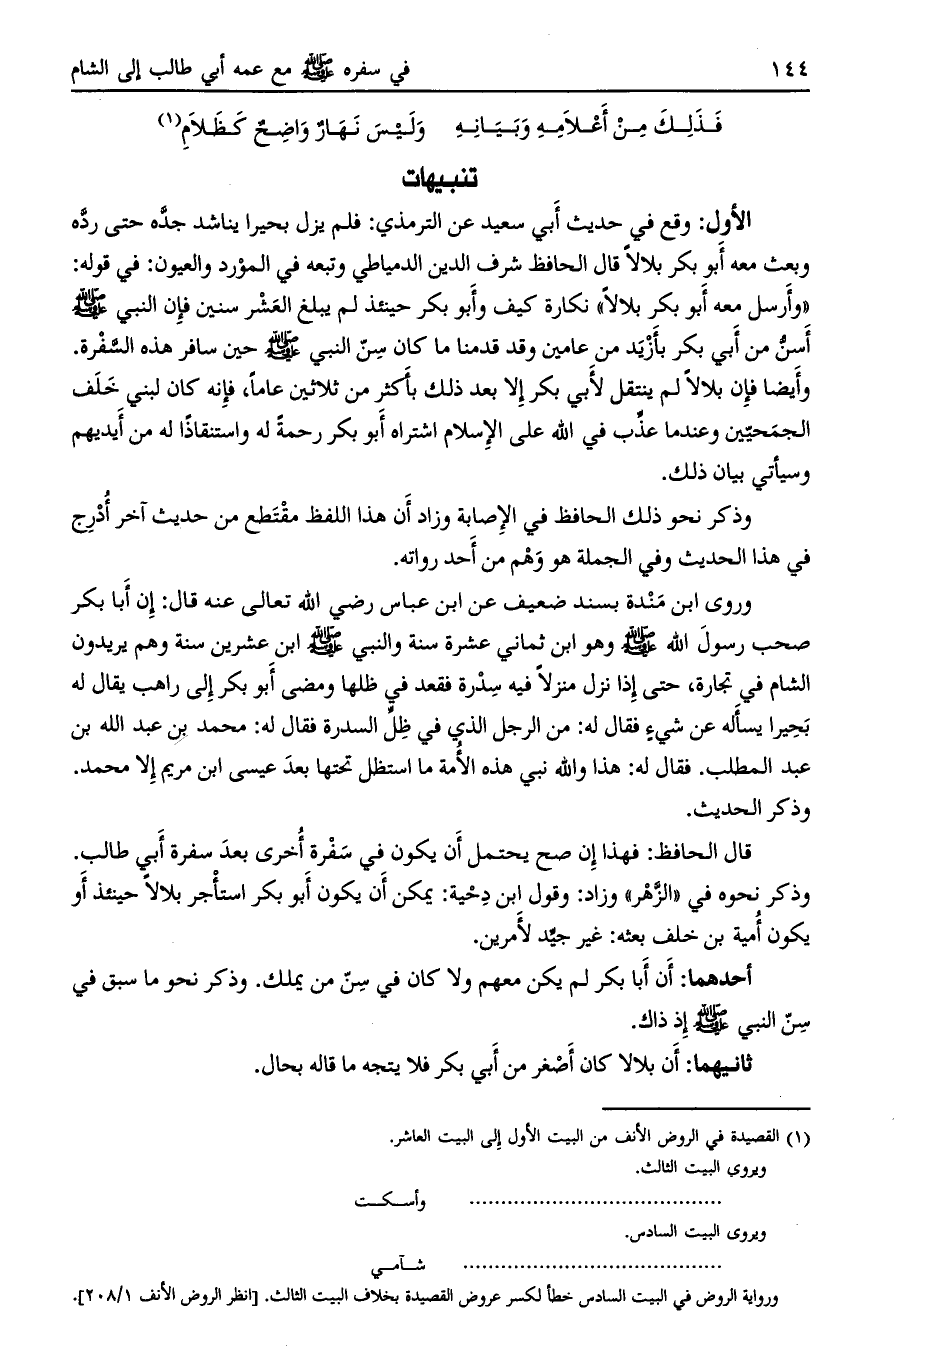 ١٤٤ في سفره ﷺ مع عمه أبي طالب إلى الشام
فَذَلِكَ مِنْ أَعْلاَمِهِ وَبَيَانِهِ وَلَيْسَ نَهَارٌ وَاضِحٌ كَظَلاَمِ(١)
تنبيهات
الأول: وقع في حديث أبي سعيد عن الترمذي: فلم يزل بحيرا يناشد جدَّه حتى ردَّه
وبعث معه أبو بكر بلالاً قال الحافظ شرف الدين الدمياطي وتبعه في المؤرد والعيون: في قوله:
«وأرسل معه أبو بكر بلالاً» نكارة كيف وأبو بكر حينئذ لم يبلغ العَشْر سنين فإن النبي ﷺ
أسنُّ من أبي بكر بأَزْيَد من عامين وقد قدمنا ما كان سِنّ النبي ﷺ حين سافر هذه السَّفْرة.
وأيضا فإن بلالاً لم ينتقل لأبي بكر إلا بعد ذلك بأكثر من ثلاثين عاماً، فإنه كان لبني خَلَف
الجمَحيّين وعندما عذِّب في الله على الإسلام اشتراه أبو بكر رحمةً له واستنقاذًا له من أيديهم
وسيأتي بيان ذلك.
وذكر نحو ذلك الحافظ في الإصابة وزاد أن هذا اللفظ مقْتَطع من حديث آخر أُدْرِج
في هذا الحديث وفي الجملة هو وَهْم من أحد رواته.
وروى ابن مَنْدة بسند ضعيف عن ابن عباس رضي الله تعالى عنه قال: إن أبا بكر
صحب رسولَ الله ﷺ وهو ابن ثماني عشرة سنة والنبي ﷺ ابن عشرين سنة وهم يريدون
الشام في تجارة، حتى إذا نزل منزلاً فيه سِدْرة فقعد في ظلها ومضى أبو بكر إلى راهب يقال له
بَحِيرا يسأله عن شيءٍ فقال له: من الرجل الذي في ظِلِّ السدرة فقال له: محمد بن عبد الله بن
عبد المطلب. فقال له: هذا والله نبي هذه الأمة ما استظل تحتها بعدَ عيسى ابن مريم إلا محمد.
وذكر الحديث.
قال الحافظ: فهذا إن صح يحتمل أن يكون في سَفْرة أُخرى بعدَ سفرة أبي طالب.
وذكر نحوه في «الزَّهْر» وزاد: وقول ابن دِحْية: يمكن أن يكون أبو بكر استأْجر بلالاً حينئذ أو
يكون أُمية بن خلف بعثه: غير جيِّد لأمرين.
أحدهما: أن أبا بكر لم يكن معهم ولا كان في سِنّ من يملك. وذكر نحو ما سبق في
سِنّ النبي ﷺ إذ ذاك.
ثانيهما: أن بلالا كان أصْغر من أبي بكر فلا يتجه ما قاله بحال.
(١) القصيدة في الروض الأنف من البيت الأول إلى البيت العاشر.
ويروى البيت الثالث.
........................................ وأسكت
ويروى البيت السادس.
........................................ شآمي
ورواية الروض في البيت السادس خطأ لكسر عروض القصيدة بخلاف البيت الثالث. [انظر الروض الأنف ٢٠٨/١].